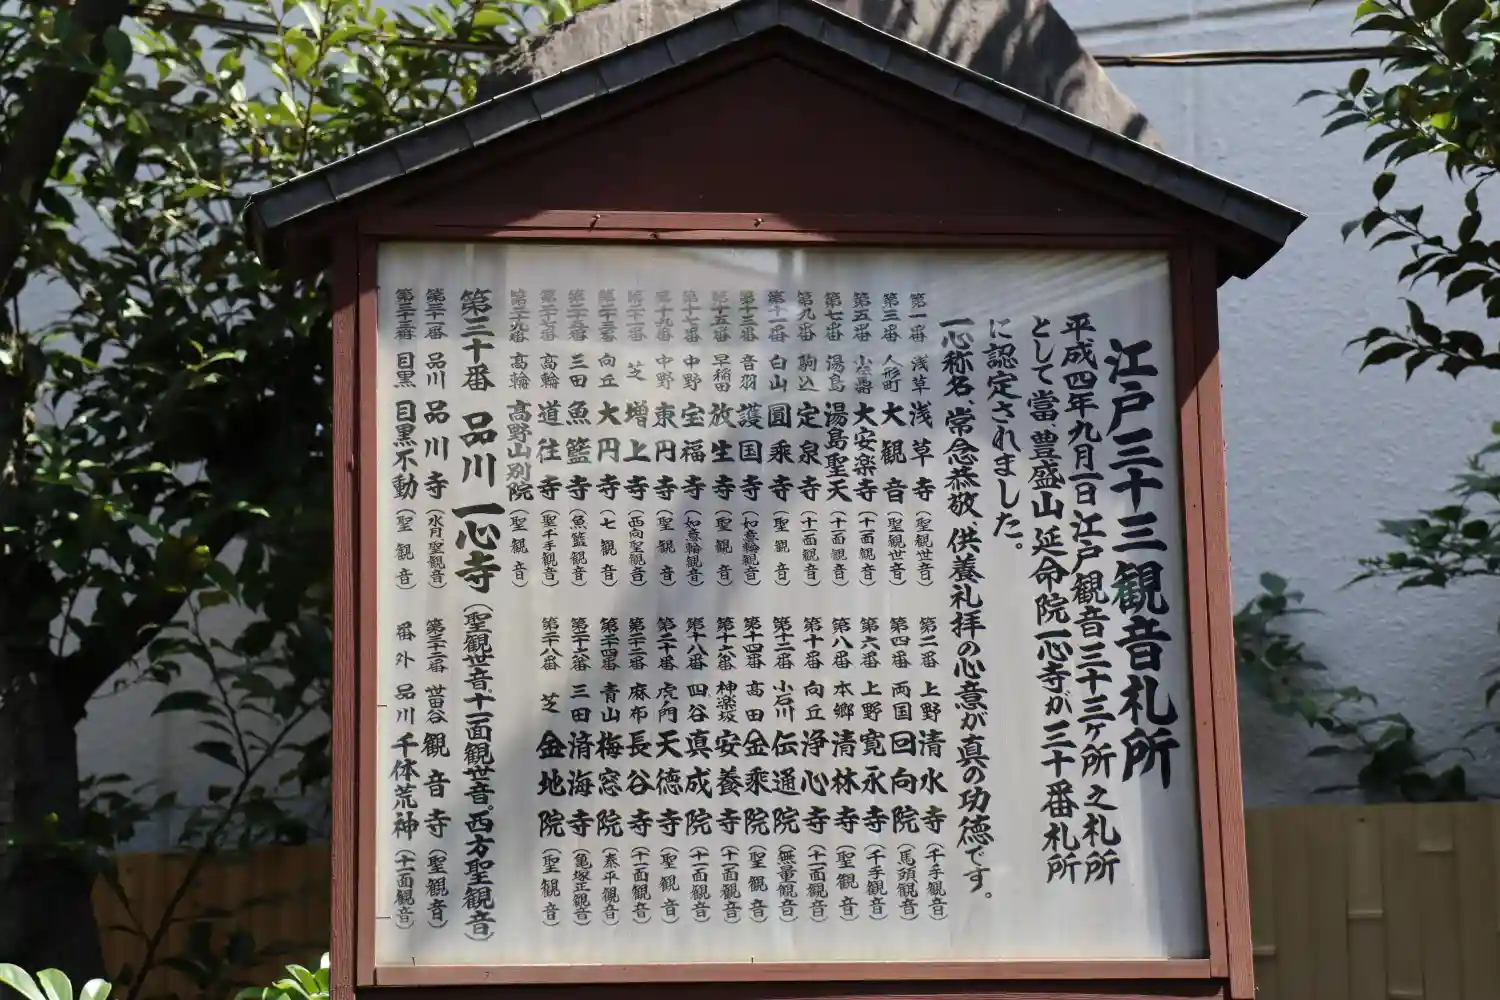 江戸三十三観音札所
平成四年九月一日江戸観音三十三ヶ所之札所
として當、豊盛山延命院一心寺が三十番札所
に認定されました。
一心称名、常念恭敬、供養礼拝の心意が真の功徳です。
第一番 浅草 浅草寺(聖観世音)
第二番 上野 清水寺(千手観音)
第三番 人形町 大観音(聖観世音)
第四番 両国 回向院(馬頭観音)
第五番 小伝馬 大安楽寺(十一面観音)
第六番 上野 寛永寺(千手観音)
第七番 湯島 湯島聖天(十一面観音)
第八番 本郷 清林寺(聖観音)
第九番 駒込 定泉寺(十一面観音)
第十番 向丘 浄心寺(十一面観音)
第十一番 白山 圓乘寺(聖観音)
第十二番 小石川 伝通院(無量観音)
第十三番 音羽 護国寺(如意輪観音)
第十四番 高田 金乘院(聖観音)
第十五番 早稲田 放生寺(聖観音)
第十六番 神楽坂 安養寺(十一面観音)
第十七番 中野 宝福寺(如意輪観音)
第十八番 四谷 真成院(十一面観音)
第十九番 中野 東円寺(聖観音)
第二十番 虎ノ門 天徳寺(聖観音)
第二十一番 芝 増上寺(西向聖観音)
第二十二番 麻布 長谷寺(十一面観音)
第二十三番 向丘 大円寺(七観音)
第二十四番 青山 梅窓院(泰平観音)
第二十五番 三田 魚籃寺(魚籃観音)
第二十六番 三田 済海寺(亀塚正観音)
第二十七番 高輪 道往寺(聖千手観音)
第二十八番 芝 金地院(聖観音)
第二十九番 高輪 高野山別院(聖観音)
第三十番 品川 一心寺(聖観世音。十一面観世音。西方聖観音)
第三十一番 品川 品川寺(水月聖観音)
第三十二番 世田谷 観音寺(聖観音)
第三十三番 目黒 目黒不動(聖観音)
番外 品川 千体荒神(十一面観音)